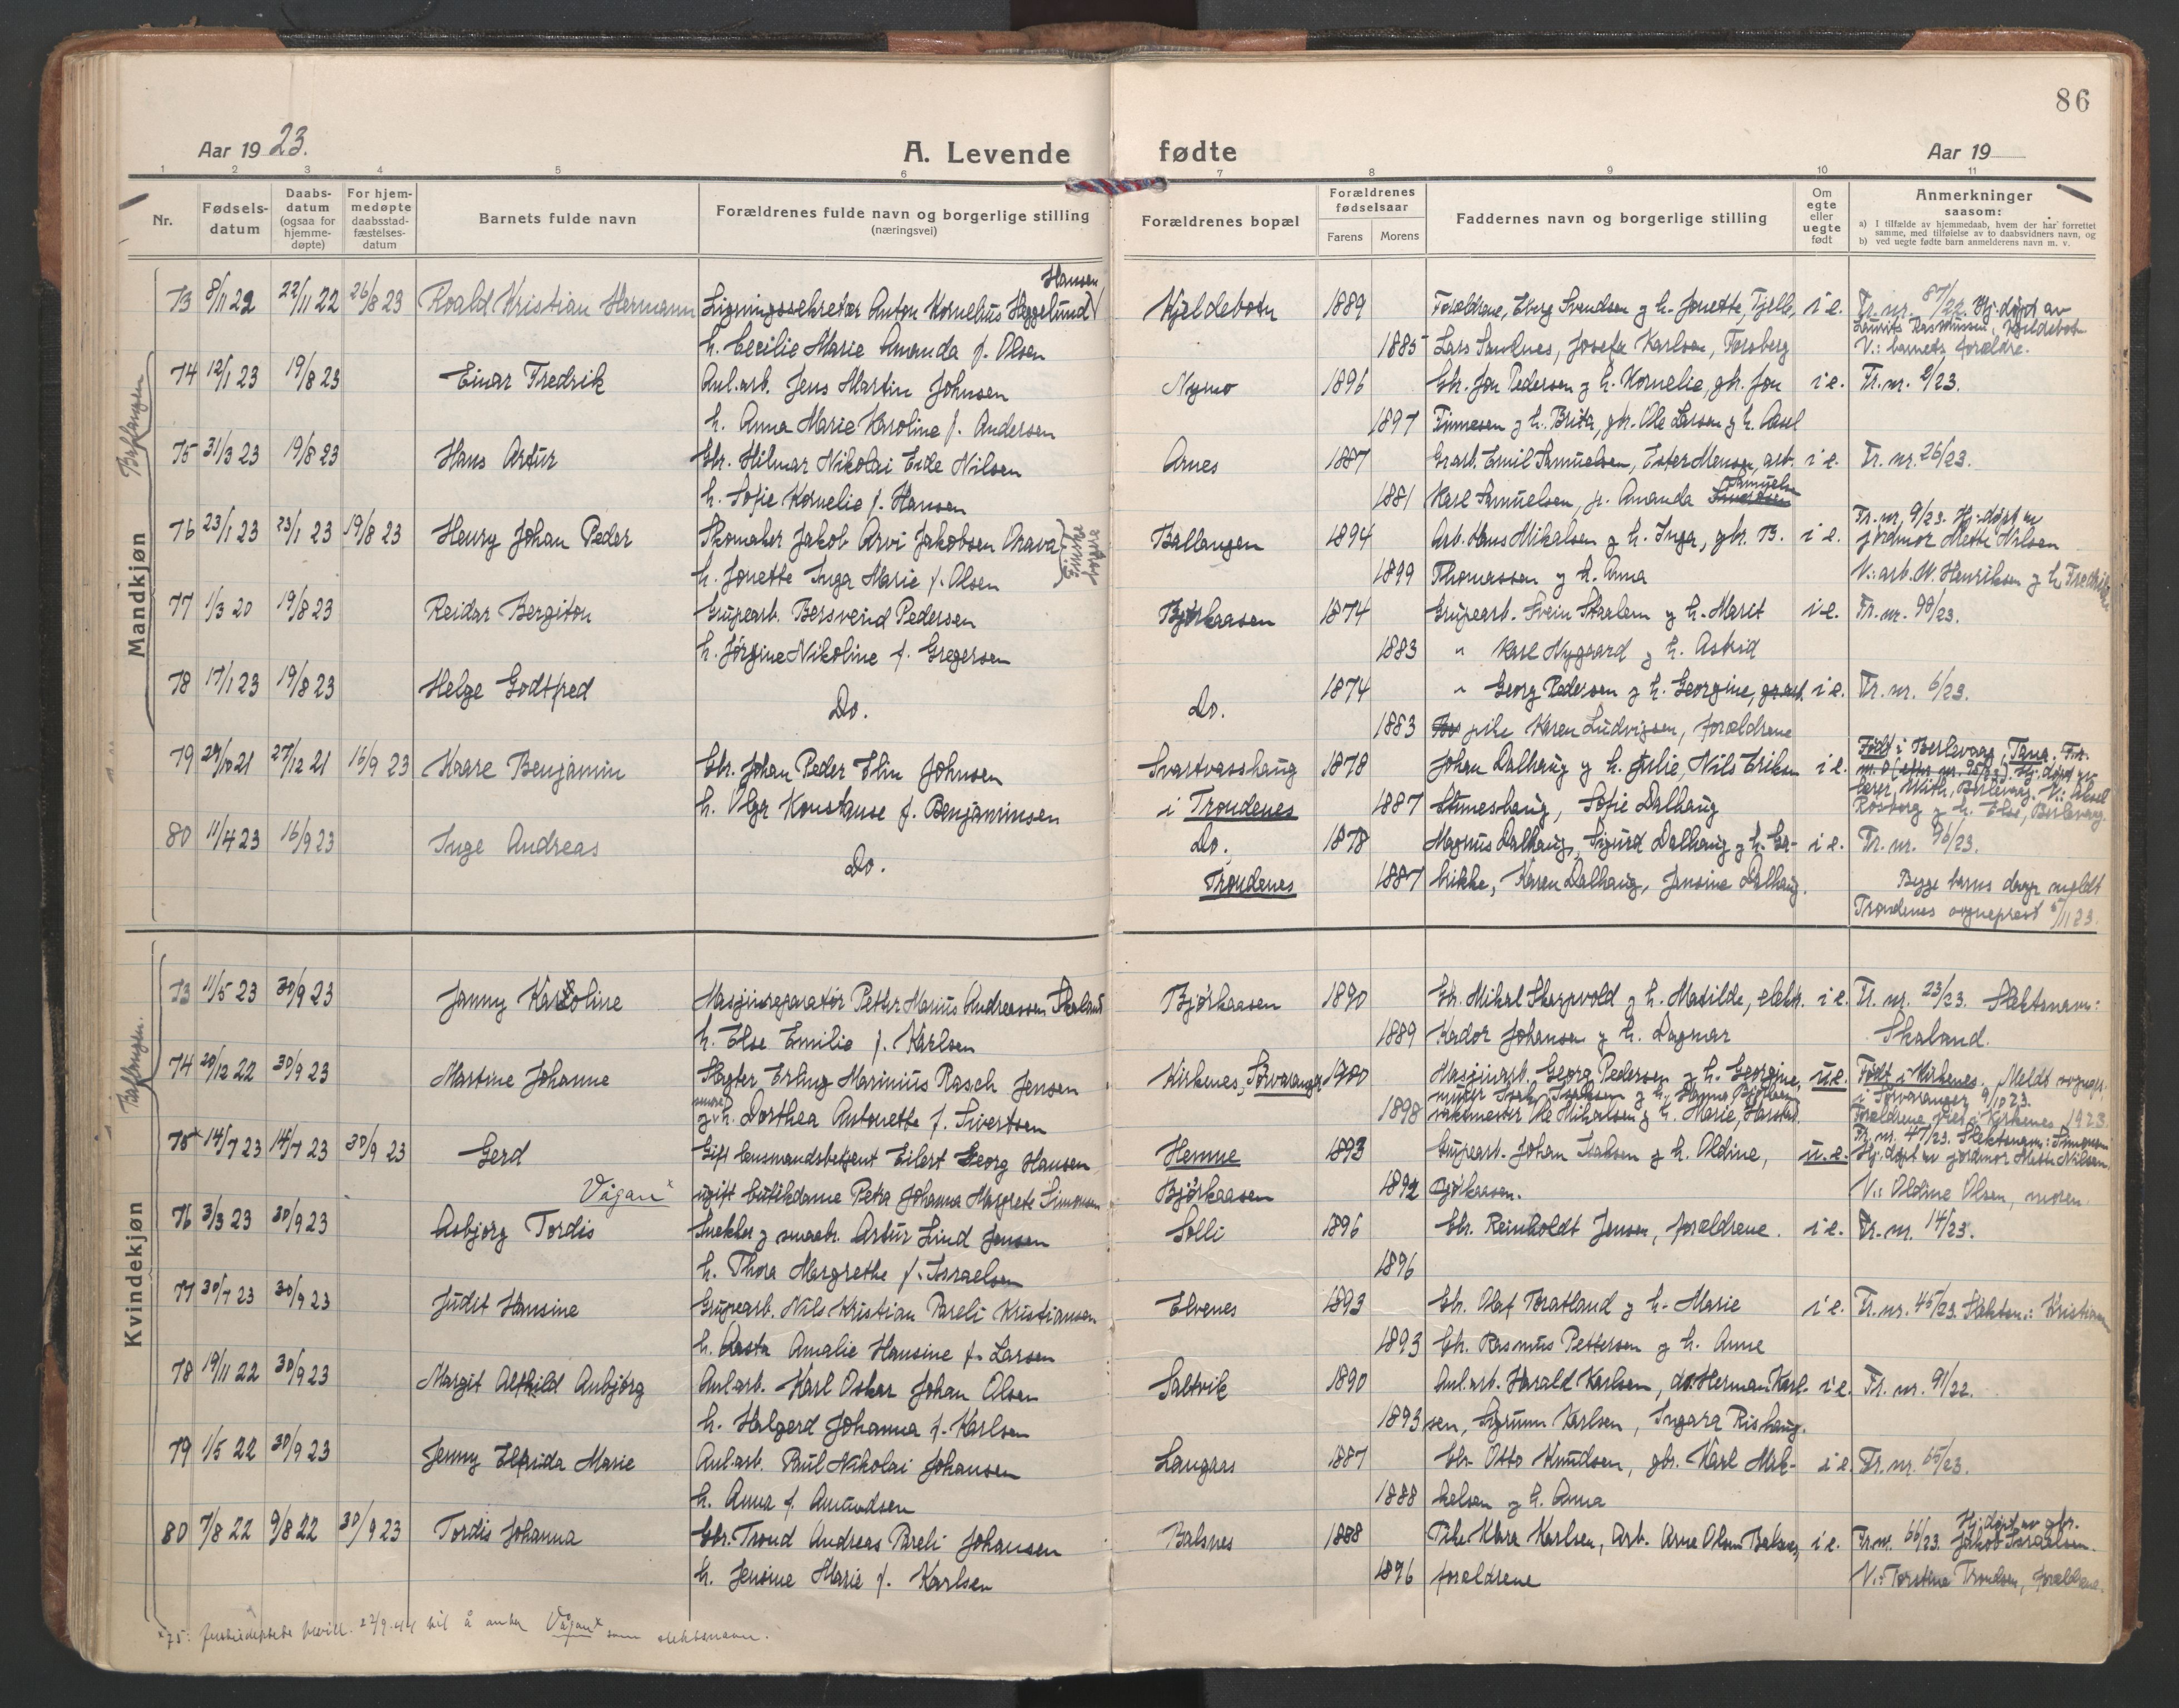 86
Aar 1923.
A. Levende fødte
Aar 19
1 2 3 4 5 6 7 8 9 10 11
Nr.
Fødsels-datum
Daabs-datum (ogsaa for hjemme-døpte)
For hjem-medøpte daabsstad-fæstelses-datum
Barnets fulde navn
Forældrenes fulde navn og borgerlige stilling
(næringsvei)
Forældrenes bopæl
Forældrenes fødselsaar
Farens Morens
Faddernes navn og borgerlige stilling
Om egte eller uegte født
Anmerkninger
saasom:
a) I tilfælde av hjemmedaab, hvem der har forrettet samme, med tilføielse av to daabsvidners navn, og
b) ved uegte fødte barn anmelderens navn m. v.
Mandkjøn
Ballangen
Hansen,
73 8/11 22 22/11 22 26/8 23 Roald Kristian Hermann Ligningssekretær Anton Kornelius Heggelund Kjeldebotn 1889 Forældrene, Eberg Svendsen g h. Jonette, Fjelle, i e. Fr. nr. 87/22. Hj. døpt av
Laurits Rasmussen, Kjeldebotn
h. Cecilie Marie Amanda f. Olsen 1885 Lars Saulnes, Josefa Karlsen, Forsberg V.: barnets forældre.
74 12/1 23 19/8 23 Einar Fredrik Anl.arb. Jens Martin Johnsen Nymo 1896 Gbr. Jon Pedersen g h. Kornelie, gbr. Jon i e. Fr. nr. 2/23.
h. Anna Marie Karoline f. Andersen 1897 Finnesen g h. Brita, gbr. Ole Larsen g h. Aasel
75 31/3 23 19/8 23 Hans Artur Gbr. Hilmar Nikolai Eide Nilsen Arnes 1887 Gr.arb. Emil Samuelsen, Ester Monsen, arb. i e. Fr. nr. 26/23.
h. Sofie Kornelie f. Hansen 1881 Karl Samuelsen, p. Amanda Samuels.
76 23/1 23 23/1 23 19/8 23 Henry Johan Peder Skomaker Jakob Arvi Jakobsen Arava Finske borgere Ballangen 1894 Arb. Hans Mikalsen g h. Inga, gbr. B. i e. Fr. nr. 9/23. Hj. døpt av
jordmor Mette Nilsen
h. Jonette Inga Marie f. Olsen 1899 Thomassen g h. Anna V.: arb. N. Henriksen g h. Fredrikke
77 1/3 20 19/8 23 Reidar Bergiton Grubearb. Bersvend Pedersen Bjørkaasen 1874 Grubearb. Svein Staalem g h. Marit i e. Fr. nr. 90/23.
h. Jørgine Nikoline f. Gregersen 1883 " Karl Nygaard g h. Astrid
78 17/1 23 19/8 23 Helge Godtfred Do. Do. 1874 " Georg Pedersen g h. Georgine, i e. Fr. nr. 6/23.
1883 pike Karen Ludvigsen, forældrene
79 29/10 21 27/12 21 16/9 23 Kaare Benjamin Gbr. Johan Peder Elin Johnsen Svartvasshaug 1878 Johan Dalhaug g h. Julie, Nils Eriksen i e. Født i Berlevaag, Tana. Fr.
Hj. døpt av
h. Olga Konstanse f. Benjaminsen i Trondenes 1887 Stuneshaug, Sofie Dalhaug lærer With, Berlevaag. V.: Aksel
Rosberg g h. Else, Berlevaag.
80 11/4 23 16/9 23 Inge Andreas Do. Do. 1878 Magnus Dalhaug, Sigurd Dalhaug g h. Ga- i e. Fr. nr. 96/23.
Trondenes 1887 brikke, Karen Dalhaug, Jensine Dalhaug. Begge barns daap meldt
Trondenes sogneprest 5/11 23.
Kvindekjøn
Ballangen.
73 11/5 23 30/9 23 Janny Karoline Masjinreparatør Petter Marius Andreassen Skaland Bjørkaasen 1890 Gbr. Mikal Skarpvold g h. Matilde, elektr. i e. Fr. nr. 23/23. Slektsnavn:
h. Else Emilie f. Karlsen 1889 Kador Johansen g h. Dagmar Skaland.
74 20/12 22 30/9 23 Martine Johanne Slagter Erling Marinius Rasch Jensen Kirkenes, Sørvaranger 1900 Masjinarb. Georg Pedersen g h. Georgine, u.e. Født i Kirkenes. Meldt sognepr.
i Sørvaranger 9/10 23.
g h. Dorthea Antonette f. Sivertsen 1898 vaktmester Ole Mikalsen g h. Marie, Harstad. Forældrene viet i Kirkenes 1923.
75* 14/7 23 14/7 23 30/9 23 Gerd Gift lensmandsbetjent Eilert Georg Hansen Hemne 1893 Grubearb. Johan Isaksen g h. Oldine, u.e. Fr. nr. 47/23. Slektsnavn: Simonsen
Hj. døpt av jordmor Mette Nilsen.
Vågan* ugift butikdame Petra Johanna Margrete Simonsen Bjørkaasen 1892 Bjørkaasen. V.: Oldine Olsen, moren.
76 3/3 23 30/9 23 Asbjørg Tordis Snekker g smaabr. Artur Lind Jensen Solli 1896 Gbr. Reinholdt Jensen, forældrene. i e. Fr. nr. 14/23.
h. Thora Margrethe f. Israelsen 1896
77 30/7 23 30/9 23 Judit Hansine Grubearb. Nils Kristian Pareli Kristiansen Elvenes 1893 Gbr. Olaf Bratland g h. Marie i e. Fr. nr. 45/23. Slektsn.: Kristiansen
h. Aasta Amalie Hansine f. Larsen 1893 Gbr. Rasmus Pettersen g h. Anne
78 19/11 22 30/9 23 Margit Alfhild Anbjørg Anl.arb. Karl Oskar Johan Olsen Saltvik 1890 Anl.arb. Harald Karlsen, do. Herman Karl- i e. Fr. nr. 91/22.
h. Halgerd Johanna f. Karlsen 1893 sen, Sigrunn Karlsen, Ingara Rishaug.
79 1/5 22 30/9 23 Jenny Elfrida Marie Anl.arb. Paul Nikolai Johansen Langaas 1887 Gbr. Otto Knudsen, gbr. Karl Mik- i e. Fr. nr. 65/23.
h. Anna f. Amundsen 1888 kelsen g h. Anna
80 7/8 22 9/8 22 30/9 23 Tordis Johanna Gbr. Trond Andreas Pareli Johansen Balsnes 1888 Pike Klara Karlsen, Arb. Arne Olsen Balsnes, i e. Fr. nr. 66/23. Hj. døpt av gbr.
Jakob Israelsen.
h. Jensine Marie f. Karlsen 1896 forældrene V.: Torstina Trondsen, forældrene.
*75: Justisdeptets bevill. 27/9.44 til å anta Vågan* som slektsnavn.